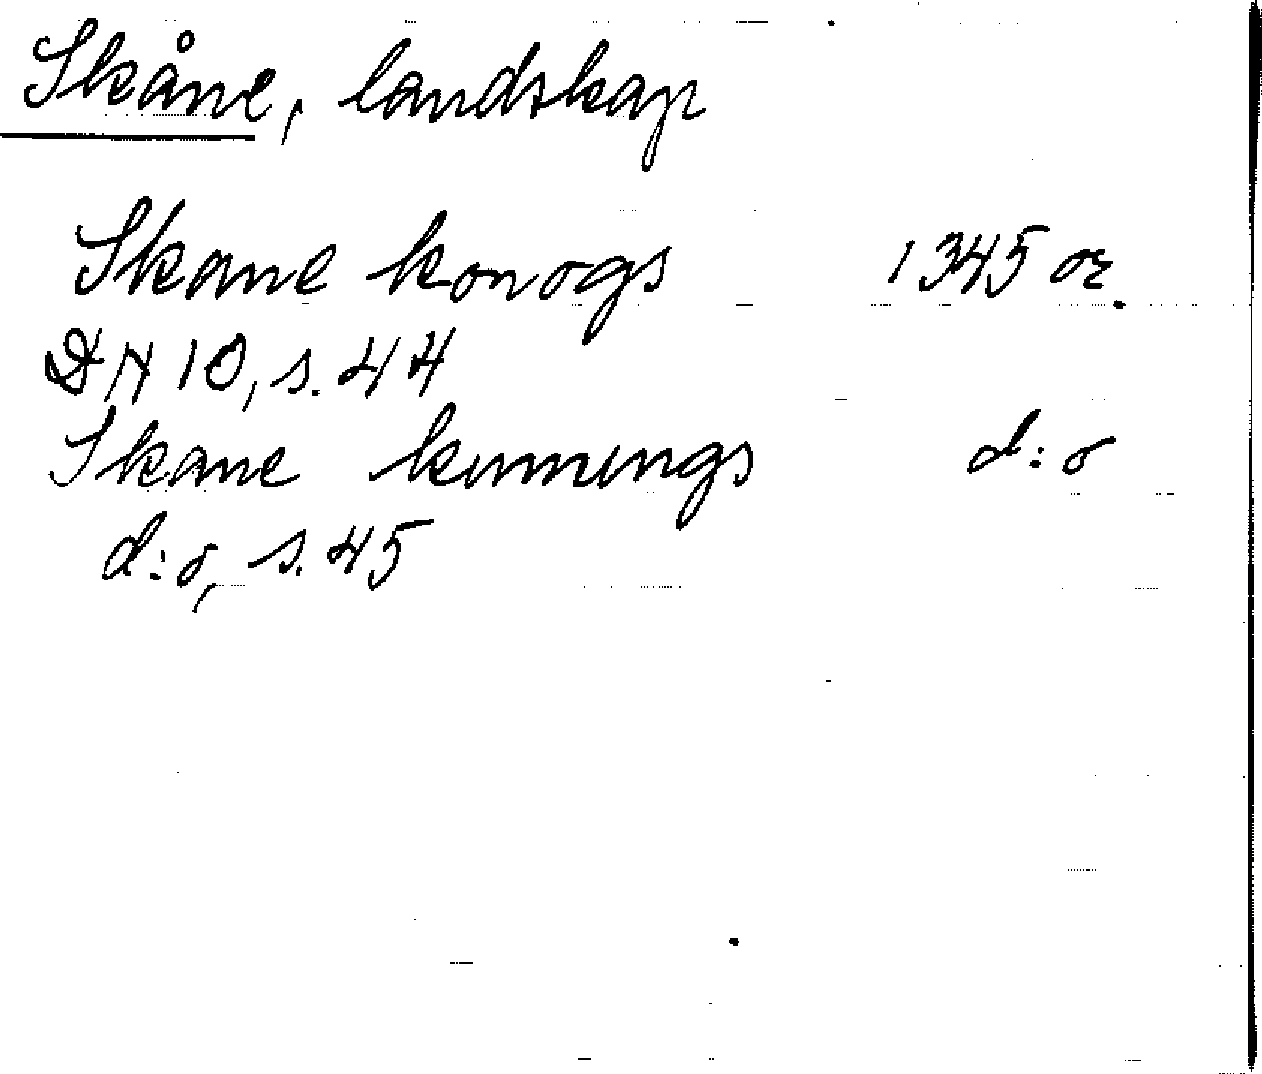 Skåne, landskap
Skane konogs 1345 or.
DN 10, s. 44
Skane kunungs d:o
d:o, s. 45